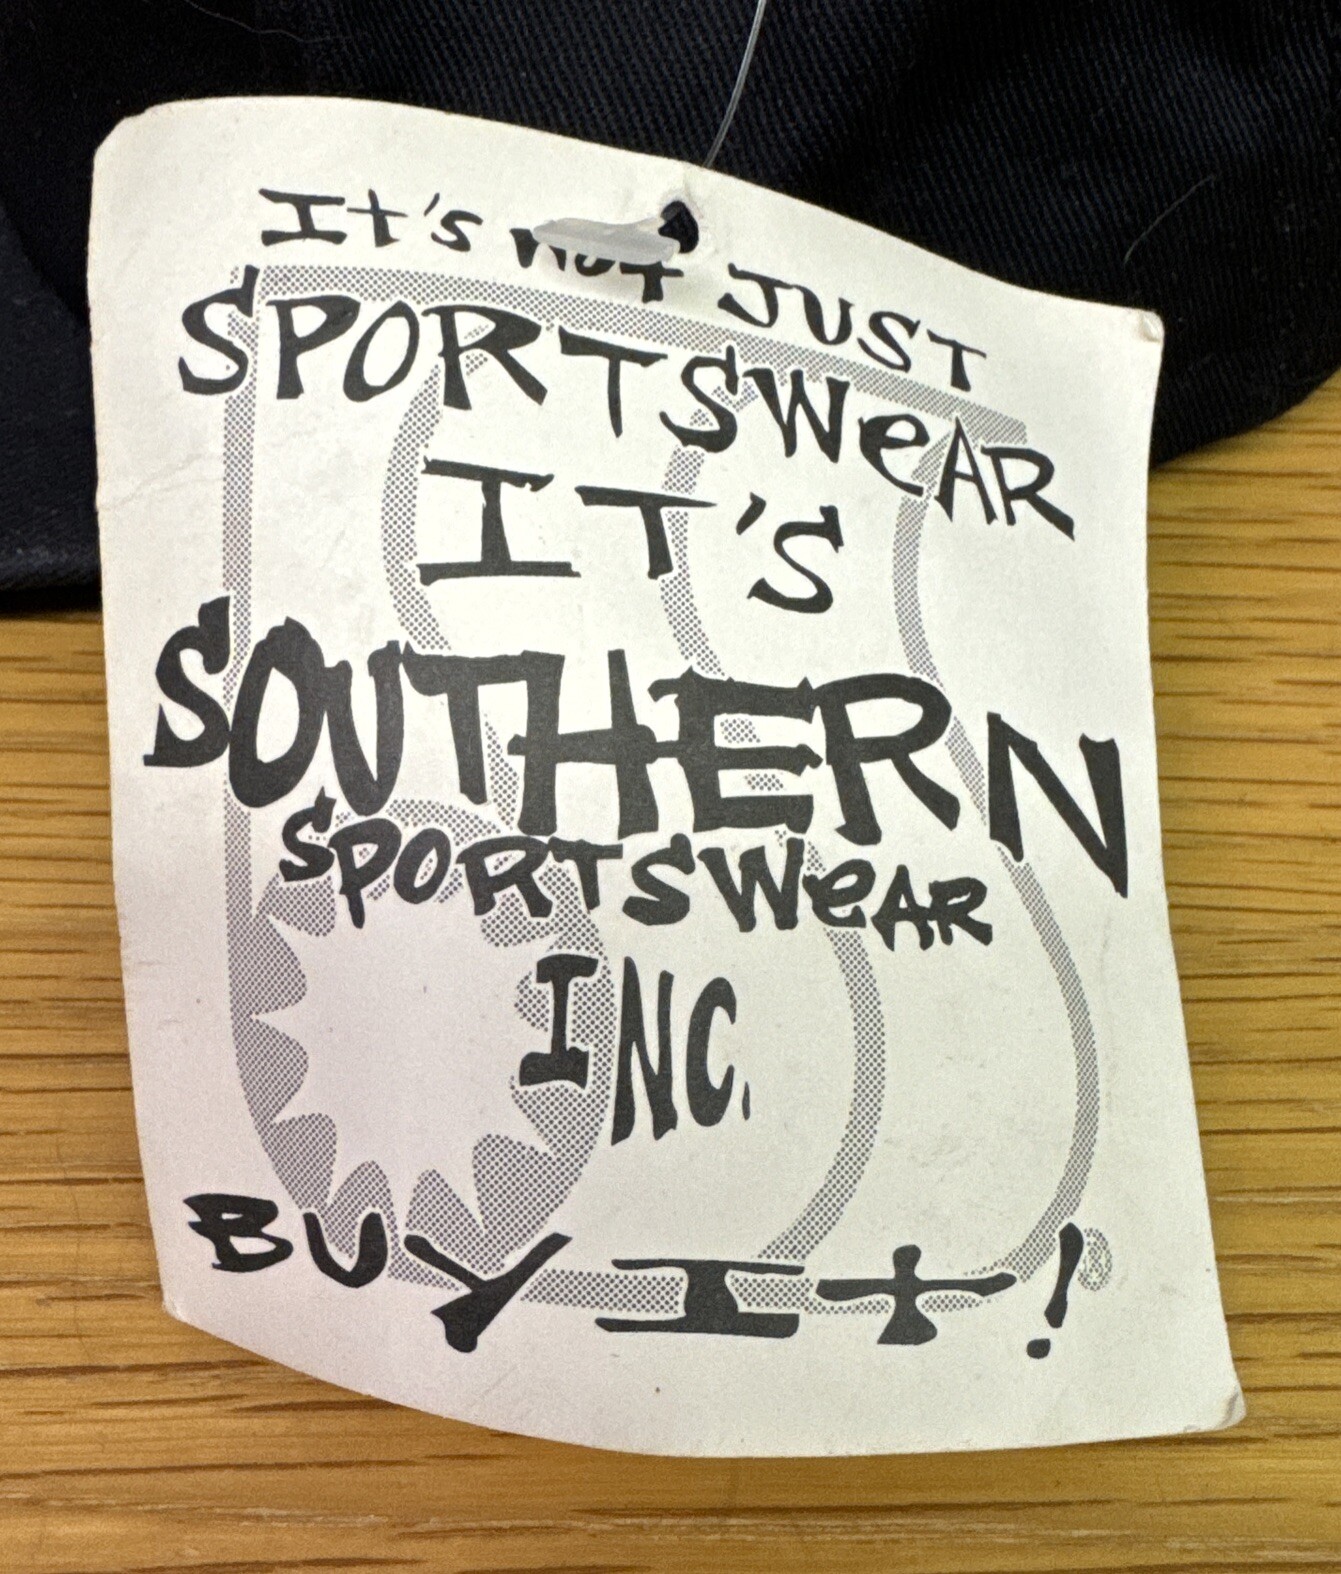 It's not JUST
SPORTSWeAR
IT'S
SOUTHERN
SPORTSWeAR
INC.
BUY It!
®